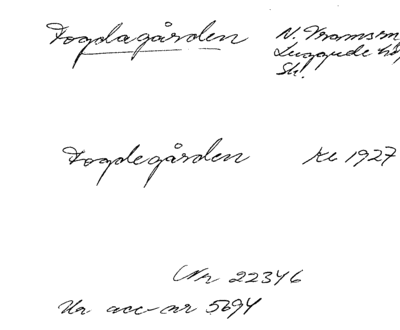 Fogdagården N. Vramsm
Luggude hd,
Sk.
Fogdegården Kl 1927
Nr 22346
Ur acc-nr 5694